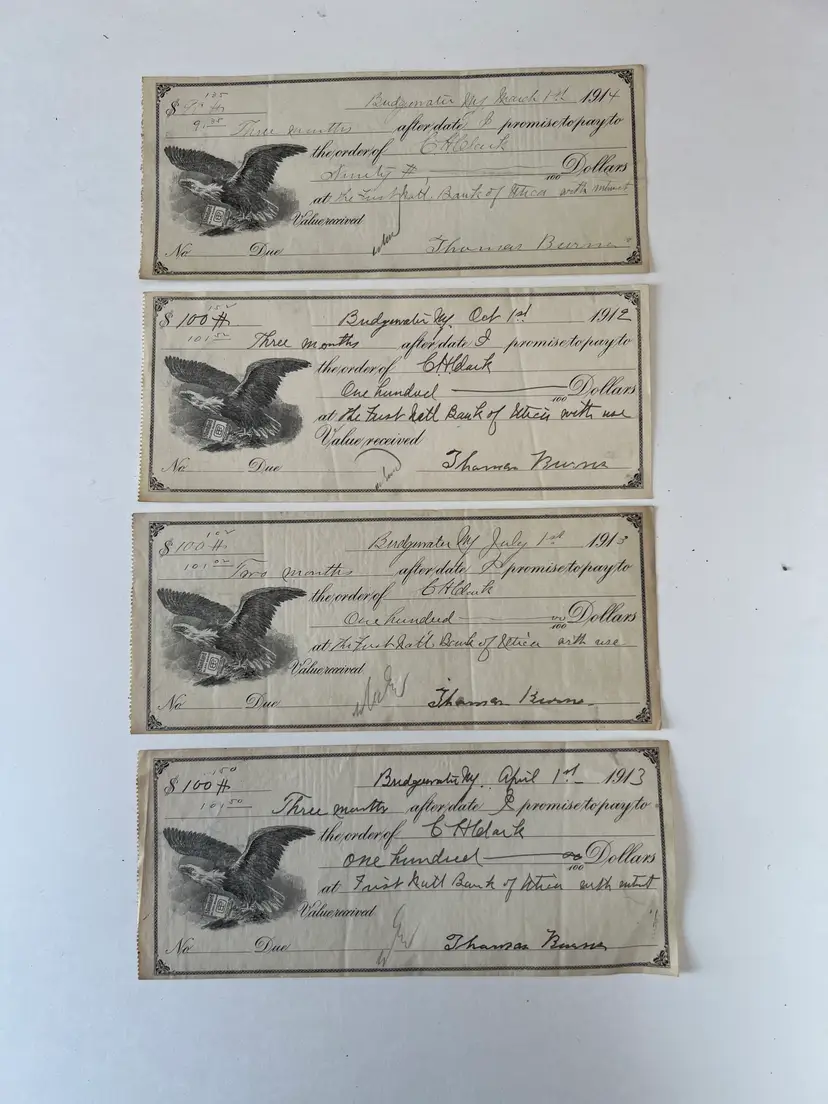 135
$ 90
Bridgewater NY March 1st 1914
91.35
Three months after date I promise to pay to
the order of C H Clark
Ninety
100 Dollars
at the First Natl Bank of Utica with interest
Value received
No Due Thomas Burns
150
$ 100 Bridgewater NY. Oct 1st 1912
101.50
Three months after date I promise to pay to
the order of C H Clark
One hundred
100 Dollars
at the First Natl Bank of Utica with use
Value received
No Due Thomas Burns
102
$ 100 Bridgewater NY July 1st 1913
101.02
Two months after date I promise to pay to
the order of C H Clark
One hundred 00
100 Dollars
at the First Natl Bank of Utica with use
Value received
No Due Thomas Burns
150
$ 100 Bridgewater NY. April 1st 1913
101.50
Three months after date I promise to pay to
the order of C H Clark
One hundred 00
100 Dollars
at First Natl Bank of Utica with intrst
Value received
No Due Thomas Burns